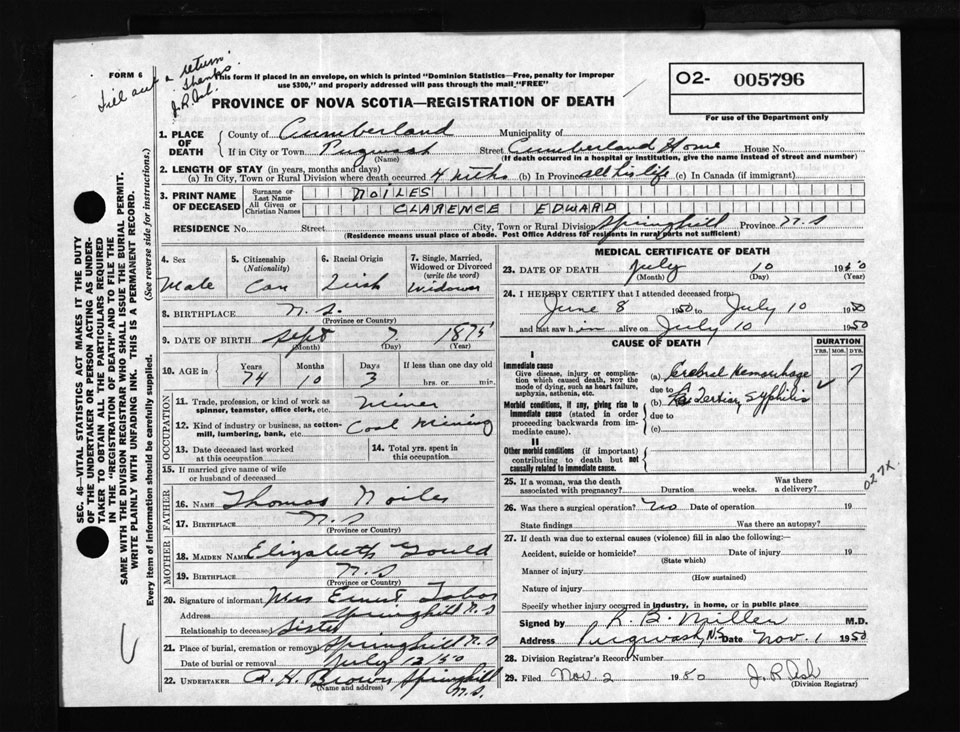 FORM 6
Fill out & return
Thanks
J.R. Ash
This form if placed in an envelope, on which is printed "Dominion Statistics—Free, penalty for improper
use $300," and properly addressed will pass through the mail "FREE"
PROVINCE OF NOVA SCOTIA—REGISTRATION OF DEATH
O2- 005796
For use of the Department only
1. PLACE OF DEATH
County of Cumberland Municipality of
If in City or Town Pugwash Street Cumberland Home House No.
(Name) (If death occurred in a hospital or institution, give the name instead of street and number)
2. LENGTH OF STAY (in years, months and days)
(a) In City, Town or Rural Division where death occurred 4 mths (b) In Province all his life (c) In Canada (if immigrant)
3. PRINT NAME OF DECEASED
Surname or Last Name NOILES
All Given or Christian Names CLARENCE EDWARD
RESIDENCE No. Street City, Town or Rural Division Springhill Province N.S
(Residence means usual place of abode. Post Office Address for residents in rural parts not sufficient)
4. Sex Male
5. Citizenship (Nationality) Can
6. Racial Origin Irish
7. Single, Married, Widowed or Divorced (write the word) Widower
8. BIRTHPLACE N.S.
(Province or Country)
9. DATE OF BIRTH Sept 7 1875
(Month) (Day) (Year)
10. AGE in Years Months Days If less than one day old
74 10 3 hrs. or min.
OCCUPATION
11. Trade, profession, or kind of work as Miner
spinner, teamster, office clerk, etc.
12. Kind of industry or business, as cotton-mill, lumbering, bank, etc. Coal Mining
13. Date deceased last worked at this occupation
14. Total yrs. spent in this occupation
15. If married give name of wife or husband of deceased
FATHER
16. NAME Thomas Noiles
17. BIRTHPLACE N.S
(Province or Country)
MOTHER
18. MAIDEN NAME Elizabeth Gould
19. BIRTHPLACE N.S
(Province or Country)
20. Signature of informant Mrs Ernest
Address Springhill N.S
Relationship to deceased Sister
21. Place of burial, cremation or removal Springhill N.S
Date of burial or removal July 12/50
22. UNDERTAKER A. H. Brown Springhill N.S.
(Name and address)
MEDICAL CERTIFICATE OF DEATH
23. DATE OF DEATH July 10 1950
(Month) (Day) (Year)
24. I HEREBY CERTIFY that I attended deceased from
June 8 1950 to July 10 1950
and last saw him alive on July 10 1950
CAUSE OF DEATH
DURATION
YRS. MOS. DYS.
I
Immediate cause
Give disease, injury or complication which caused death, NOT the mode of dying, such as heart failure, asphyxia, asthenia, etc.
(a) Cerebral Hemorrhage 7
due to
Morbid conditions, if any, giving rise to immediate cause (stated in order proceeding backwards from immediate cause)
(b) Tertiary Syphilis ✓
due to
(c)
II
Other morbid conditions (if important) contributing to death but not causally related to immediate cause.
027X.
25. If a woman, was the death associated with pregnancy? Duration weeks. Was there a delivery?
26. Was there a surgical operation? No Date of operation 19
State findings Was there an autopsy?
27. If death was due to external causes (violence) fill in also the following:
Accident, suicide or homicide? Date of injury 19
(State which)
Manner of injury
(How sustained)
Nature of injury
Specify whether injury occurred in industry, in home, or in public place
Signed by R. B. Miller M.D.
Address Pugwash, N.S Date Nov. 1 1950
28. Division Registrar's Record Number
29. Filed Nov. 2 1950 J. R. Ash
(Division Registrar)
SEC. 46—VITAL STATISTICS ACT MAKES IT THE DUTY
OF THE UNDERTAKER OR PERSON ACTING AS UNDER-
TAKER TO OBTAIN ALL THE PARTICULARS REQUIRED
IN THE "REGISTRATION OF DEATH" AND TO FILE THE
SAME WITH THE DIVISION REGISTRAR WHO SHALL ISSUE THE BURIAL PERMIT.
WRITE PLAINLY WITH UNFADING INK. THIS IS A PERMANENT RECORD.
Every item of information should be carefully supplied. (See reverse side for instructions.)